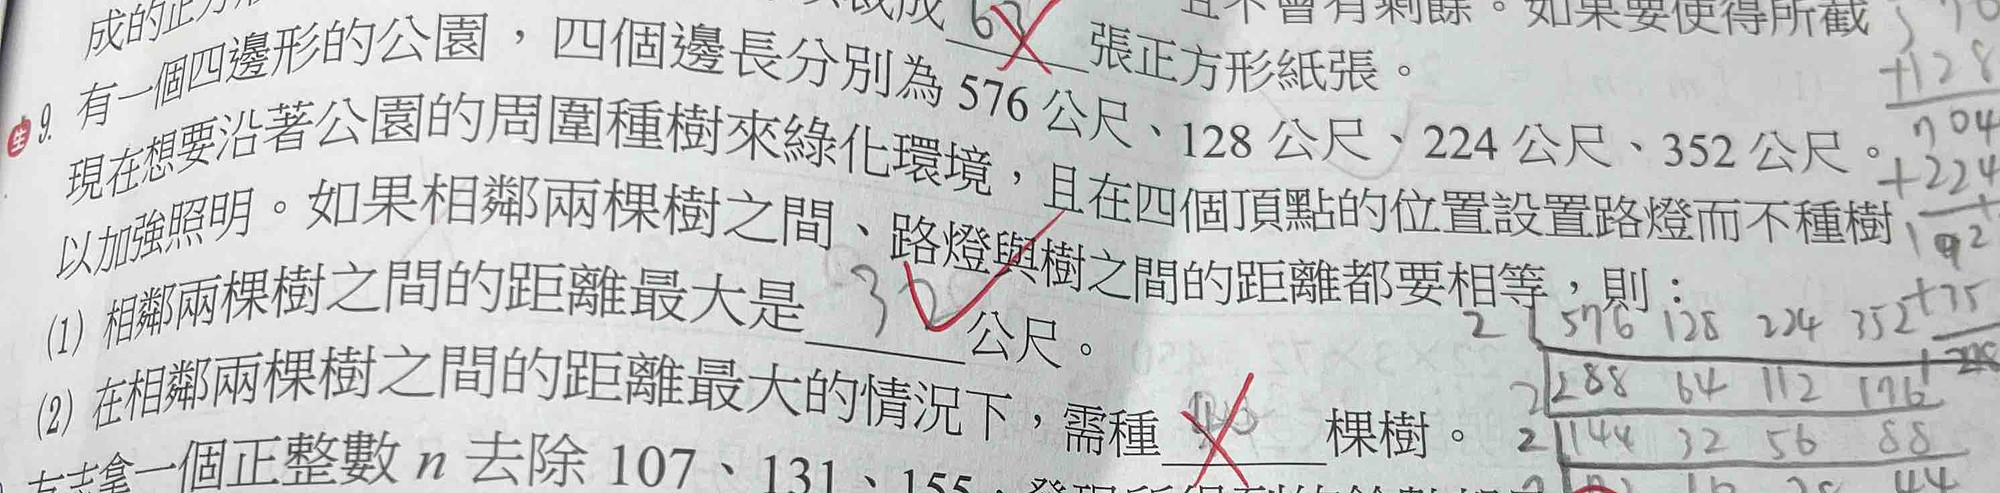 成的正方形
63 張正方形紙張。
且不會有剩餘。如果要使得所截
生 9. 有一個四邊形的公園，四個邊長分別為 576 公尺、128 公尺、224 公尺、352 公尺。
現在想要沿著公園的周圍種樹來綠化環境，且在四個頂點的位置設置路燈而不種樹
以加強照明。如果相鄰兩棵樹之間、路燈與樹之間的距離都要相等，則：
(1) 相鄰兩棵樹之間的距離最大是 32 公尺。
(2) 在相鄰兩棵樹之間的距離最大的情況下，需種 棵樹。
拿一個正整數 n 去除 107、131、155，
+128
704
+224
2 576 128 224 352
2 288 64 112 176
2 144 32 56 88
44